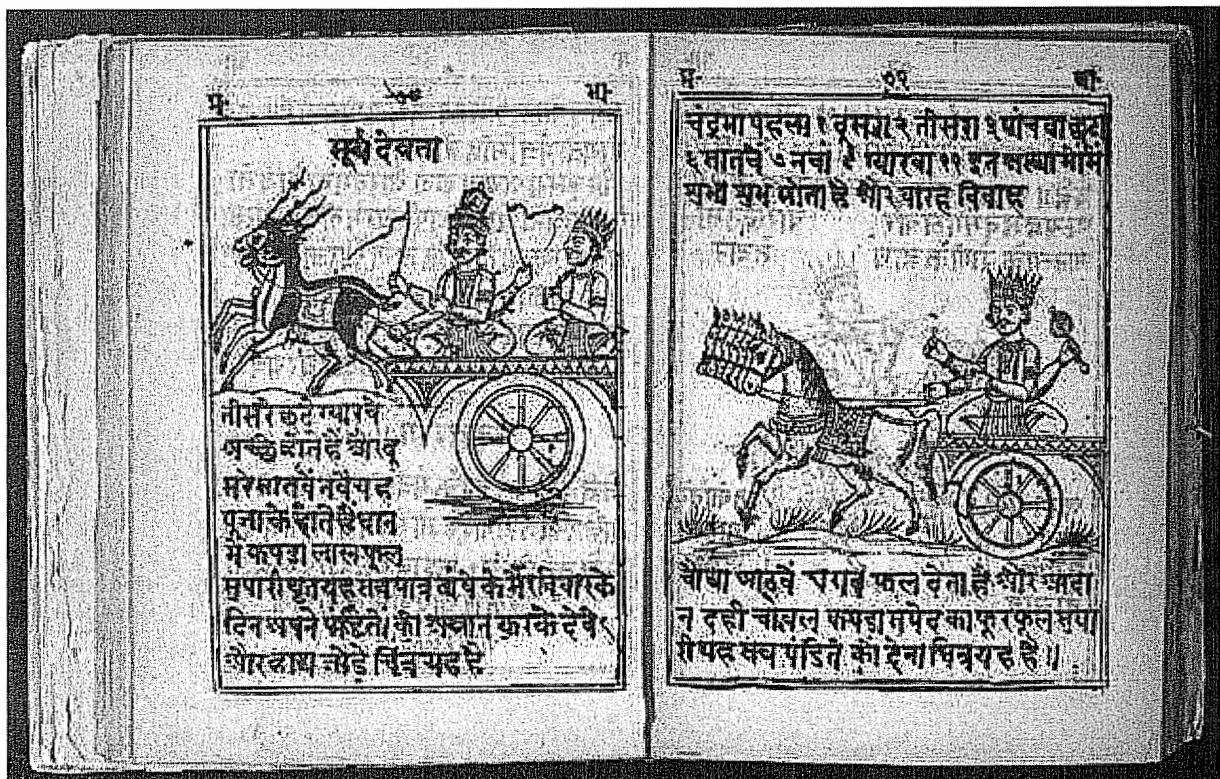 प्र॰ भा॰
सूर्य देवता
तीसरे छटे ग्यारवे
अच्छे होते है और दू
सरे सातवे नवे यह
पूजा के होते है दान
मे कपडा लाल फूल
सुपारी यह सब बांध के में रविवार के
दिन अपने पंडितो को करके देवे
और हाथ जोडे चित्र यह है
प्र॰ ७१ भा॰
चंद्रमा पहला १ दूसरा २ तीसरा ३ पांचवा छटा
६ सातवे ७ नवां ९ ग्यारवा ११ इन
शुभ होता है और बारह विवाह
चौथा आठवे फल देता है और यादा
न दही चांवल कपडा सपेद कापूर फूल सुपा
री यह सब पंडित को देना चित्र यह है॥